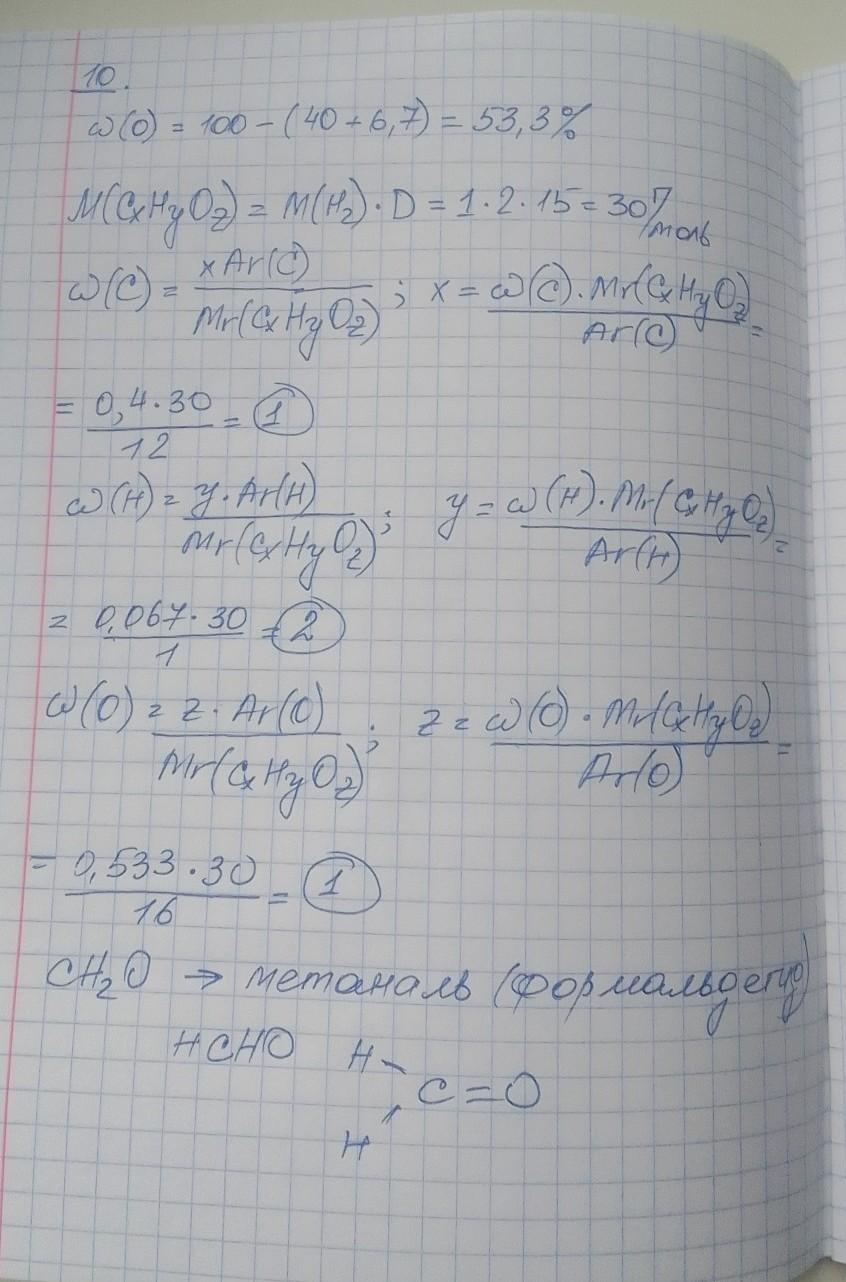 10.
ω(O) = 100 - (40 + 6,7) = 53,3%
M(CxHyOz) = M(H2) · D = 1 · 2 · 15 = 30 г/моль
ω(C) = xAr(C) / Mr(CxHyOz) ; x = ω(C) · Mr(CxHyOz) / Ar(C) =
= 0,4 · 30 / 12 = 1
ω(H) = y · Ar(H) / Mr(CxHyOz) ; y = ω(H) · Mr(CxHyOz) / Ar(H) =
= 0,067 · 30 / 1 = 2
ω(O) = z · Ar(O) / Mr(CxHyOz) ; z = ω(O) · Mr(CxHyOz) / Ar(O) =
= 0,533 · 30 / 16 = 1
CH2O → метаналь (формальдегид)
HCHO H
C=O
H